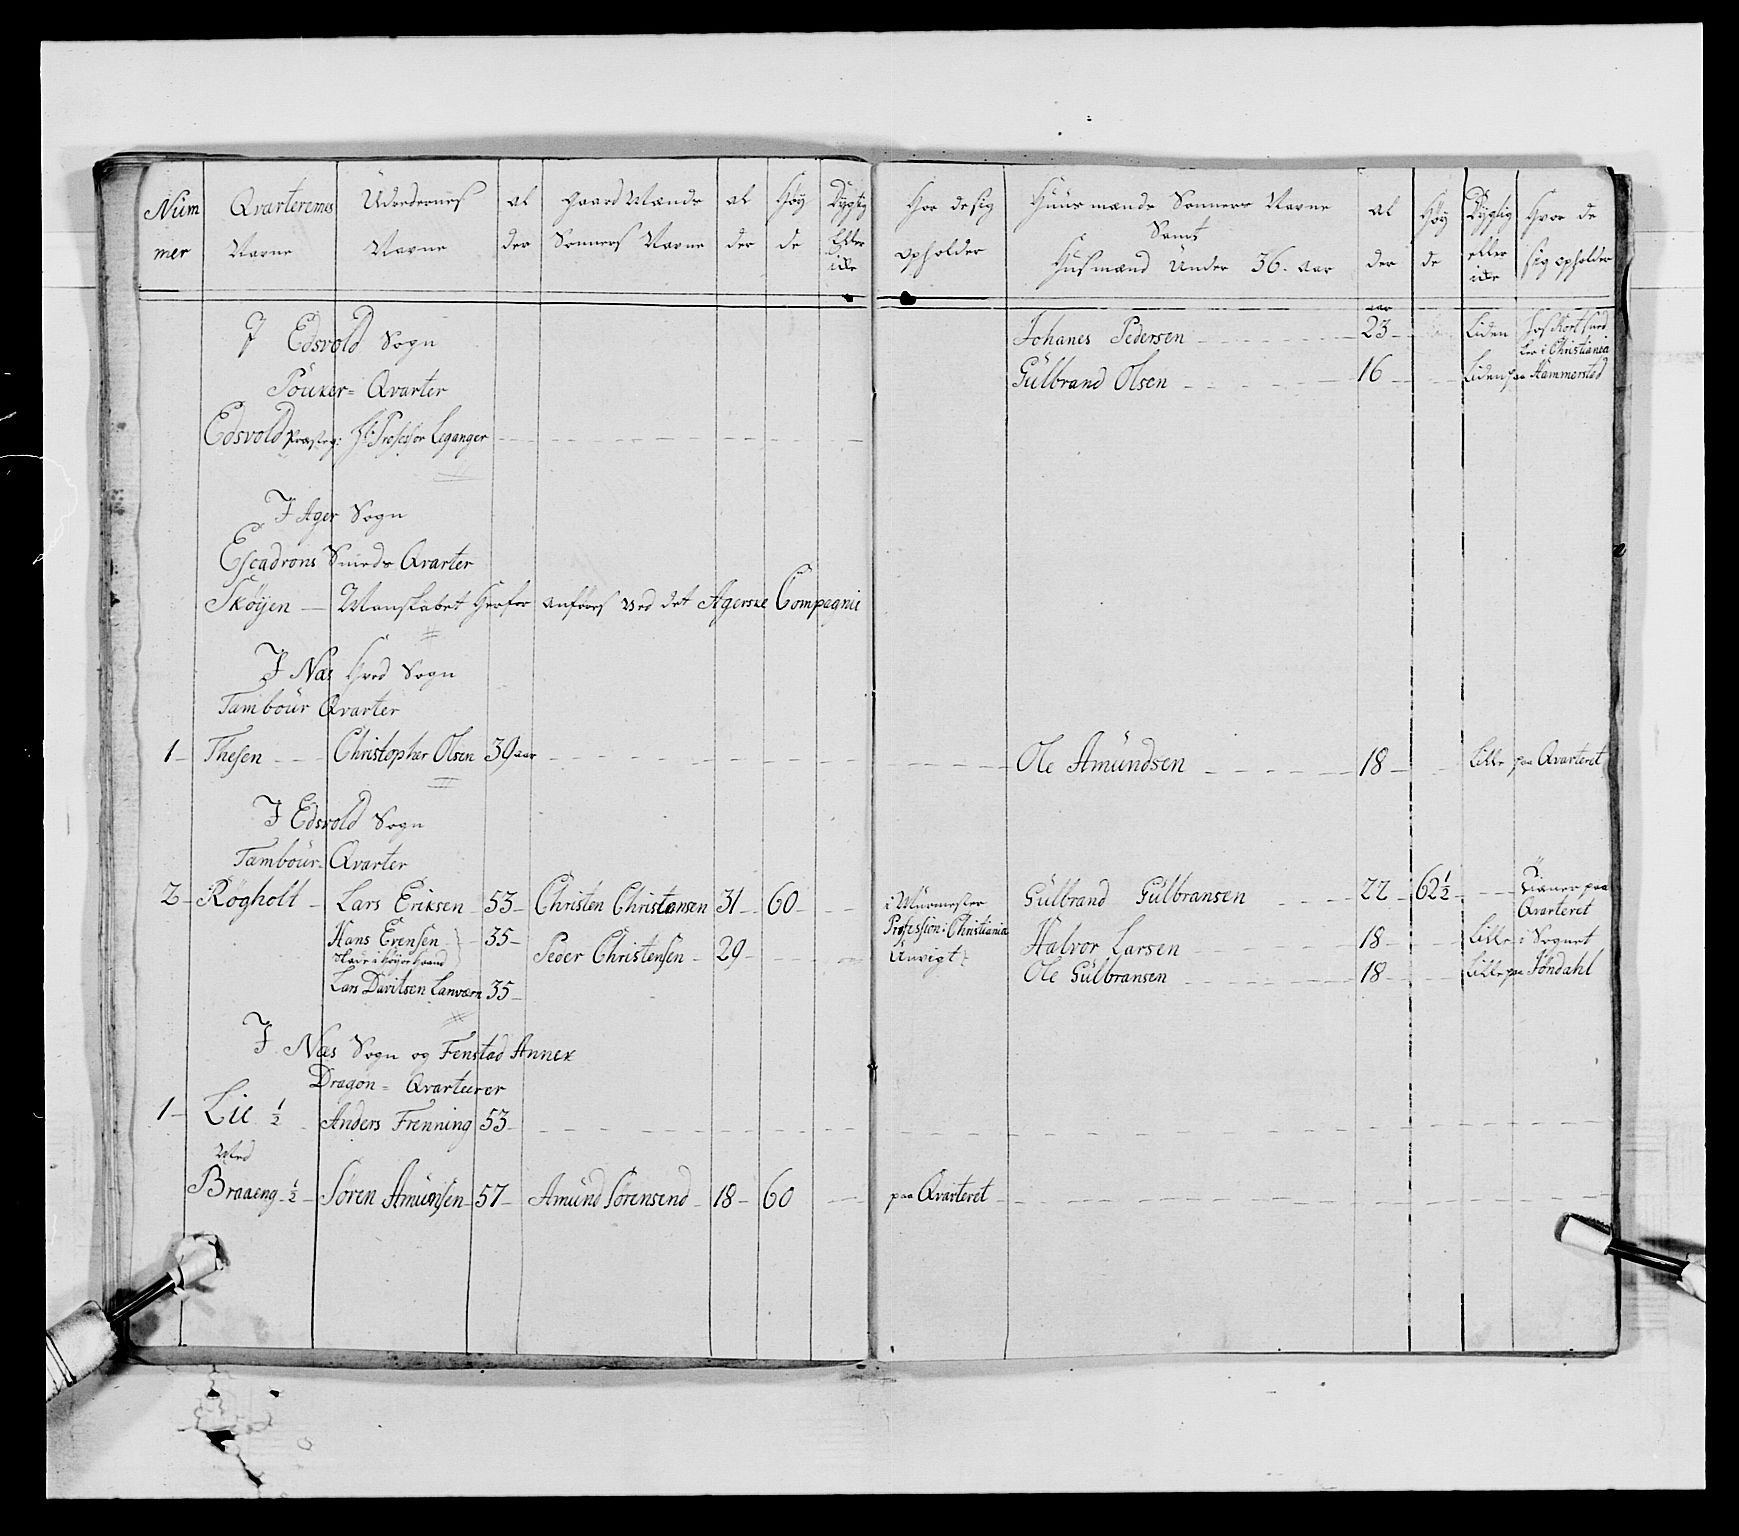 Num mer | Qvarterernes Navne | Ürydernes Navne | al der | Gaard Mænds Sønners Navne | al der | Høy de | Dygtig Eller ikke | Hor de sig opholder | Huusmænds Sønners Navne Samt Husmænd Under 36. aar | al der | Høy de | Dygtig eller ikke | Hvor de sig opholder
I Edsvold Sogn
Johanes Pedersen 23 aar Liden Christiania
Pouker= Qvarter
Gülbrand Olsen 16 Liden paa Hammerstad
Edsvold Præsteg: Hr: Profeshor Leganger
I Ager Sogn
Escadrons Smeds Qvarter
Skøyen — Mandskabet Herfor anføres ved det Agerske Compagnie
I Næs Hved Sogn
Tambour Qvarter
1 Thesen Christopher Olsen 39 aar Ole Amündsen 18 Lille paa Qvarteret
I Edsvold Sogn
Tambour= Qvarter
2 Røgholt Lars Eriksen 53 Christen Christensen 31 60 i Mürmester Profession i Christiania Gülbrand Gülbransen 22 62½ Tiener paa Qvarteret
Hans Evensen 35 Peder Christensen 29 Ünvigt Halvor Larsen 18 Lille i Sognet
Lars Davitsen Lanværn 35 Ole Gülbransen 18 Lille paa Jøndahl
I Næs Sogn og Fenstad Annex
Dragon= Qvarteerer
1 Lie ½ Anders Frenning 53
Med
Braaeng ½ Søren Amünsen 57 Amünd Sørensend 18 60 paa Qvarteret